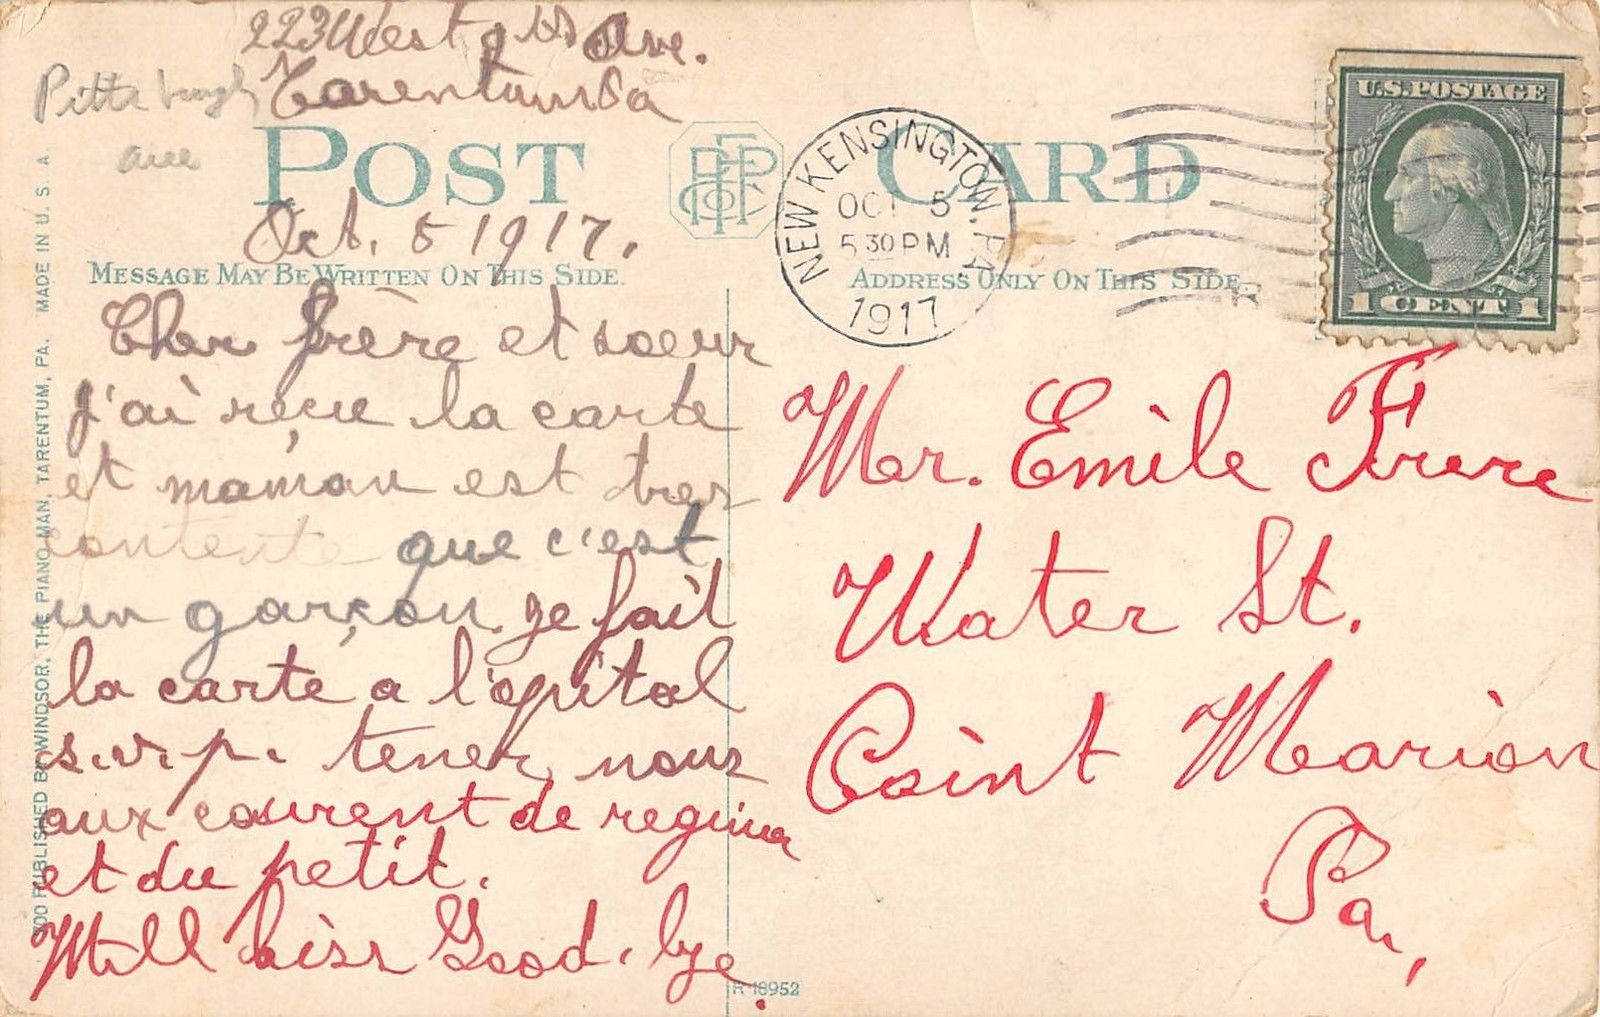 223 West Ave.
Tarentum Pa
Pittsburgh
ave
POST CARD
Oct. 5 1917.
MESSAGE MAY BE WRITTEN ON THIS SIDE.
Cher frère et soeur
j'ai reçue la carte
et maman est tres
contente que c'est
un garçon. je fait
la carte a l'opital
s.v.p. tener nous
aux courent de regina
et du petit.
Mill kiss Good.bye.
NEW KENSINGTON, PA.
OCT 5
5 30 PM
1917
ADDRESS ONLY ON THIS SIDE.
U.S. POSTAGE
1 CENT 1
Mr. Emile Frere
Water St.
Point Marion
Pa,
300 PUBLISHED BY WINDSOR, THE PIANO MAN, TARENTUM, PA. MADE IN U. S. A.
R-18952